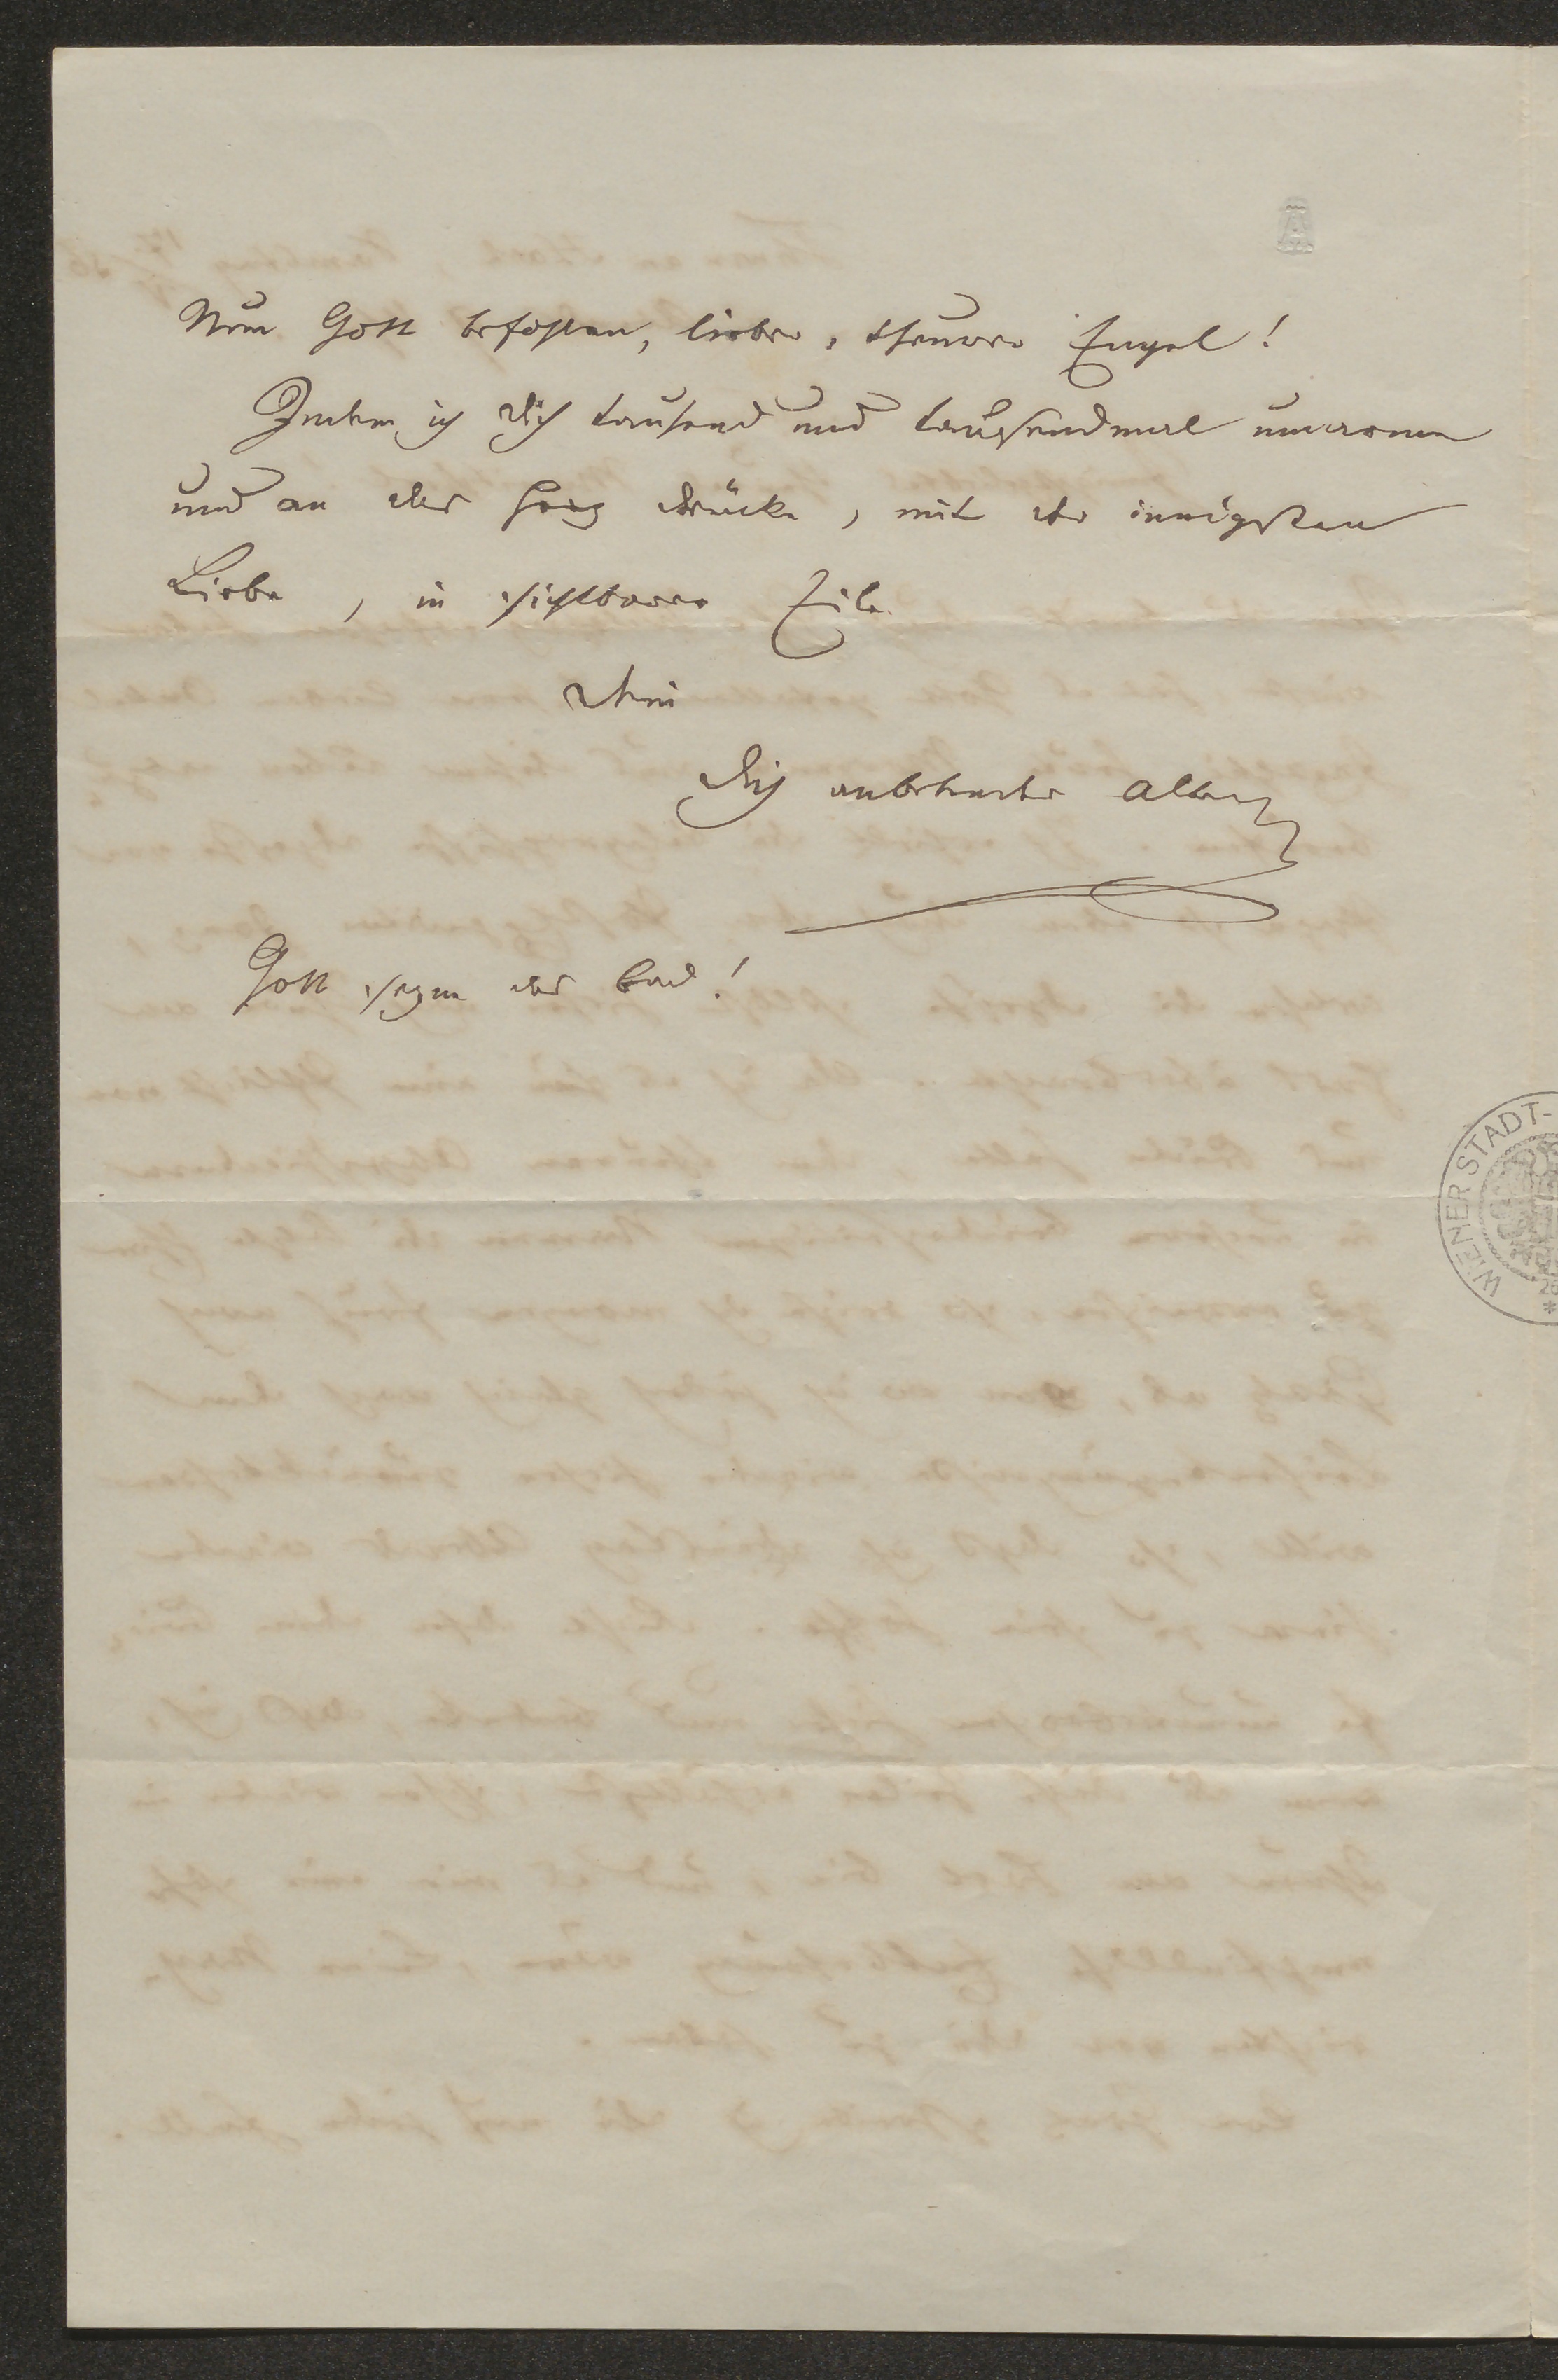 Nun Gott befohlen, lieber, theurer Engel!
Indem ich Dich tausend und tausendmal umarme
und an das Herz drücke, mit der innigsten
Liebe, in sichtbarer Eile
Dein
Dich anbetender Alter
Gott segne das Bad!
WIENER STADT-